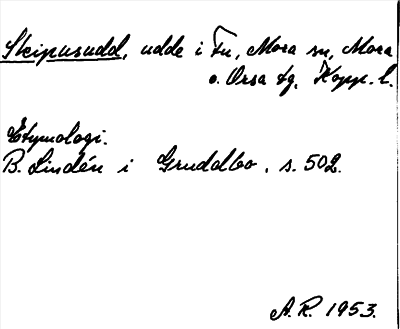 Skeipusudd, udde i Fu, Mora sn, Mora
o. Orsa tg, Kopp. l.
Etymologi.
B. Lindén i Gruddbo, s. 502.
A.R. 1953.